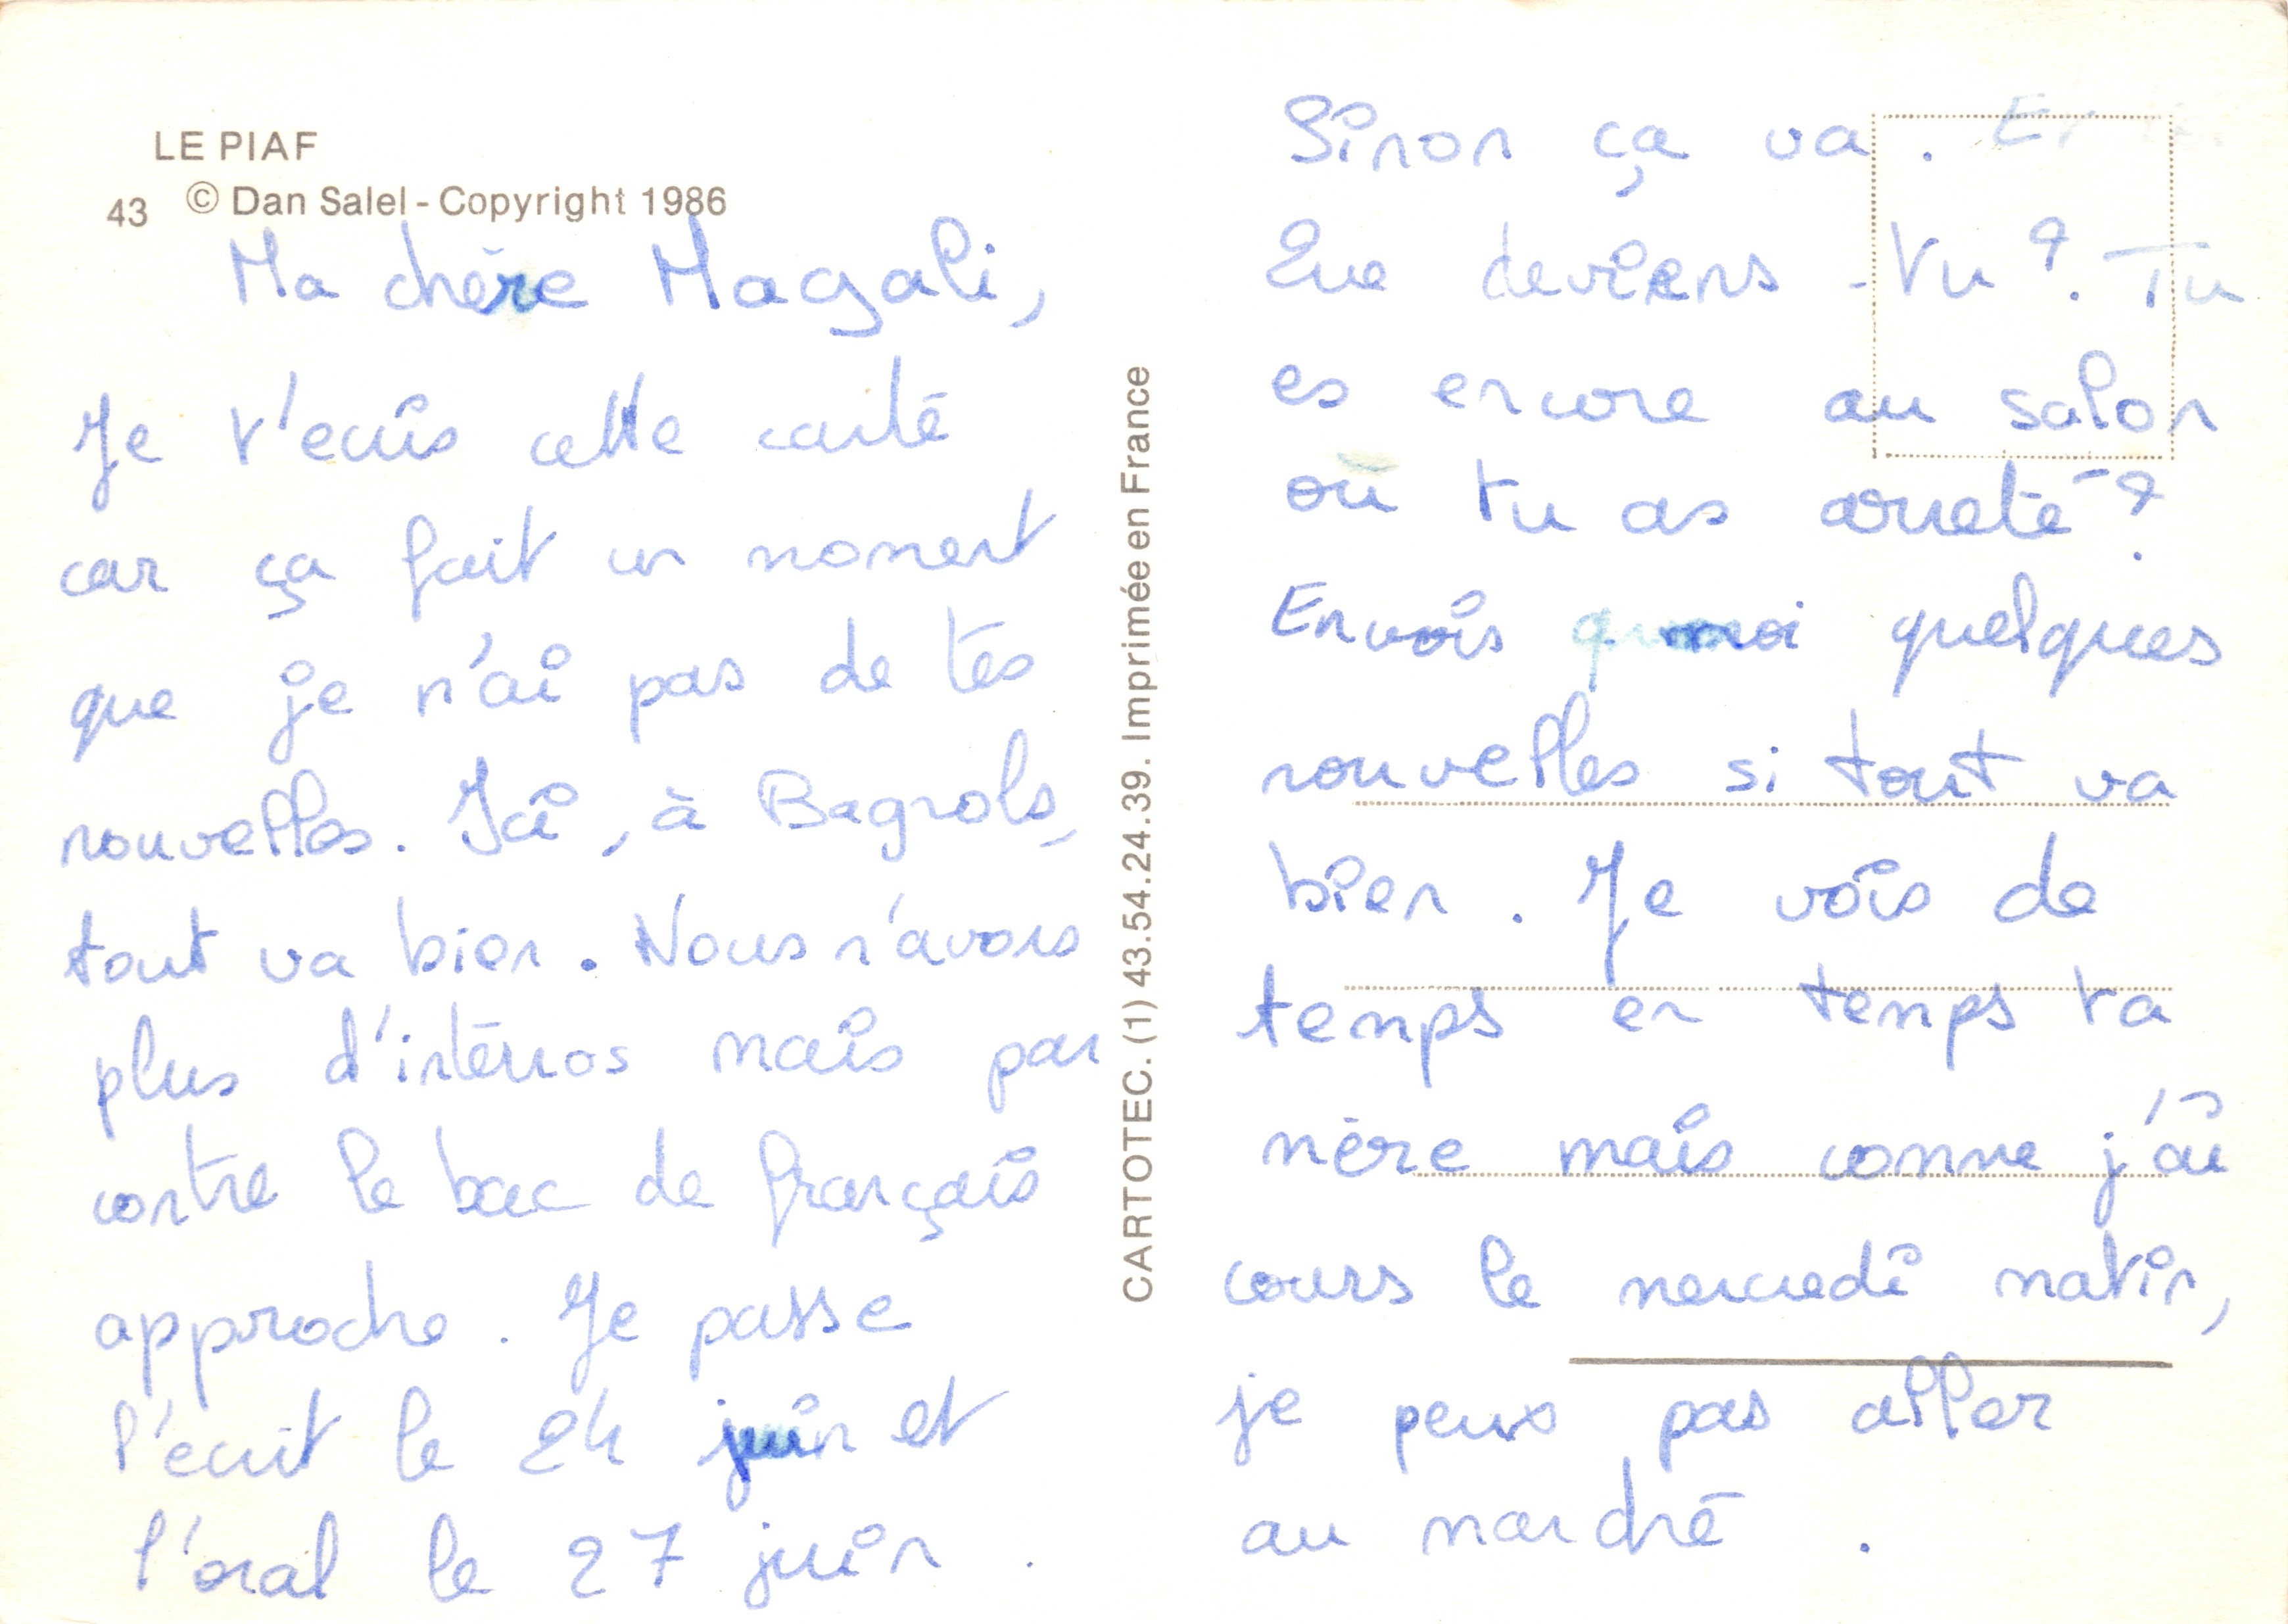 LE PIAF
43 © Dan Salel - Copyright 1986
Ma chère Magali,
Je t'écris cette carte
car ça fait un moment
que je n'ai pas de tes
nouvelles. Ici, à Bagnols,
tout va bien. Nous n'avons
plus d'intérros mais par
contre le bac de français
approche. Je passe
l'écrit le 24 juin et
l'oral le 27 juin.
CARTOTEC. (1) 43.54.24.39. Imprimée en France
Sinon ça va. Et
Que deviens-tu ? Tu
es encore au salon
où tu as arreté ?
Envois moi quelques
nouvelles si tout va
bien. Je vois de
temps en temps ta
mère mais comme j'ai
cours le mercredi matin,
je peux pas aller
au marché.